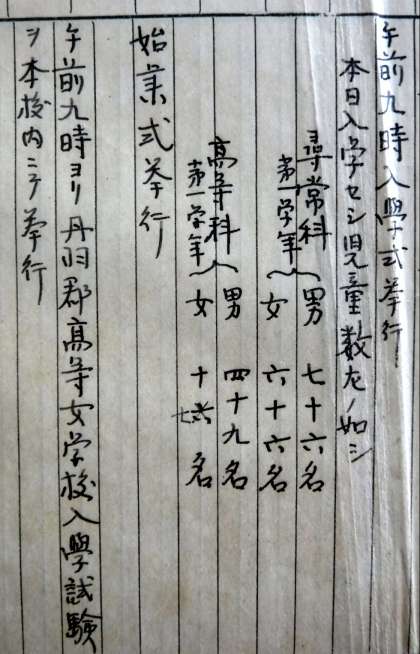 午前九時入學式挙行
本日入学セシ児童数左ノ如シ
尋常科
第一学年
男 七十六名
女 六十六名
高等科
第一学年
男 四十九名
女 十七名
始業式挙行
午前九時ヨリ丹羽郡高等女学校入學試験
ヲ本校内ニテ挙行